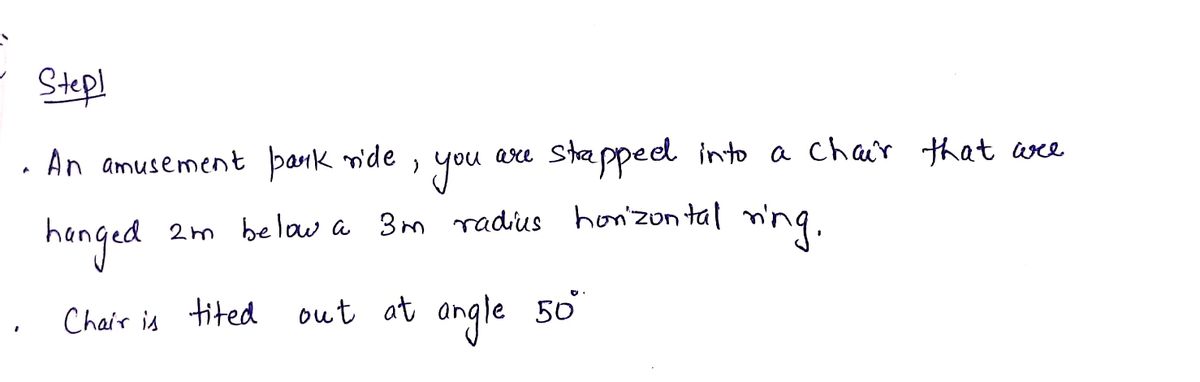 Step1
. An amusement park ride, you are strapped into a chair that are
hanged 2m below a 3m radius horizontal ring.
. Chair is tited out at angle 50°